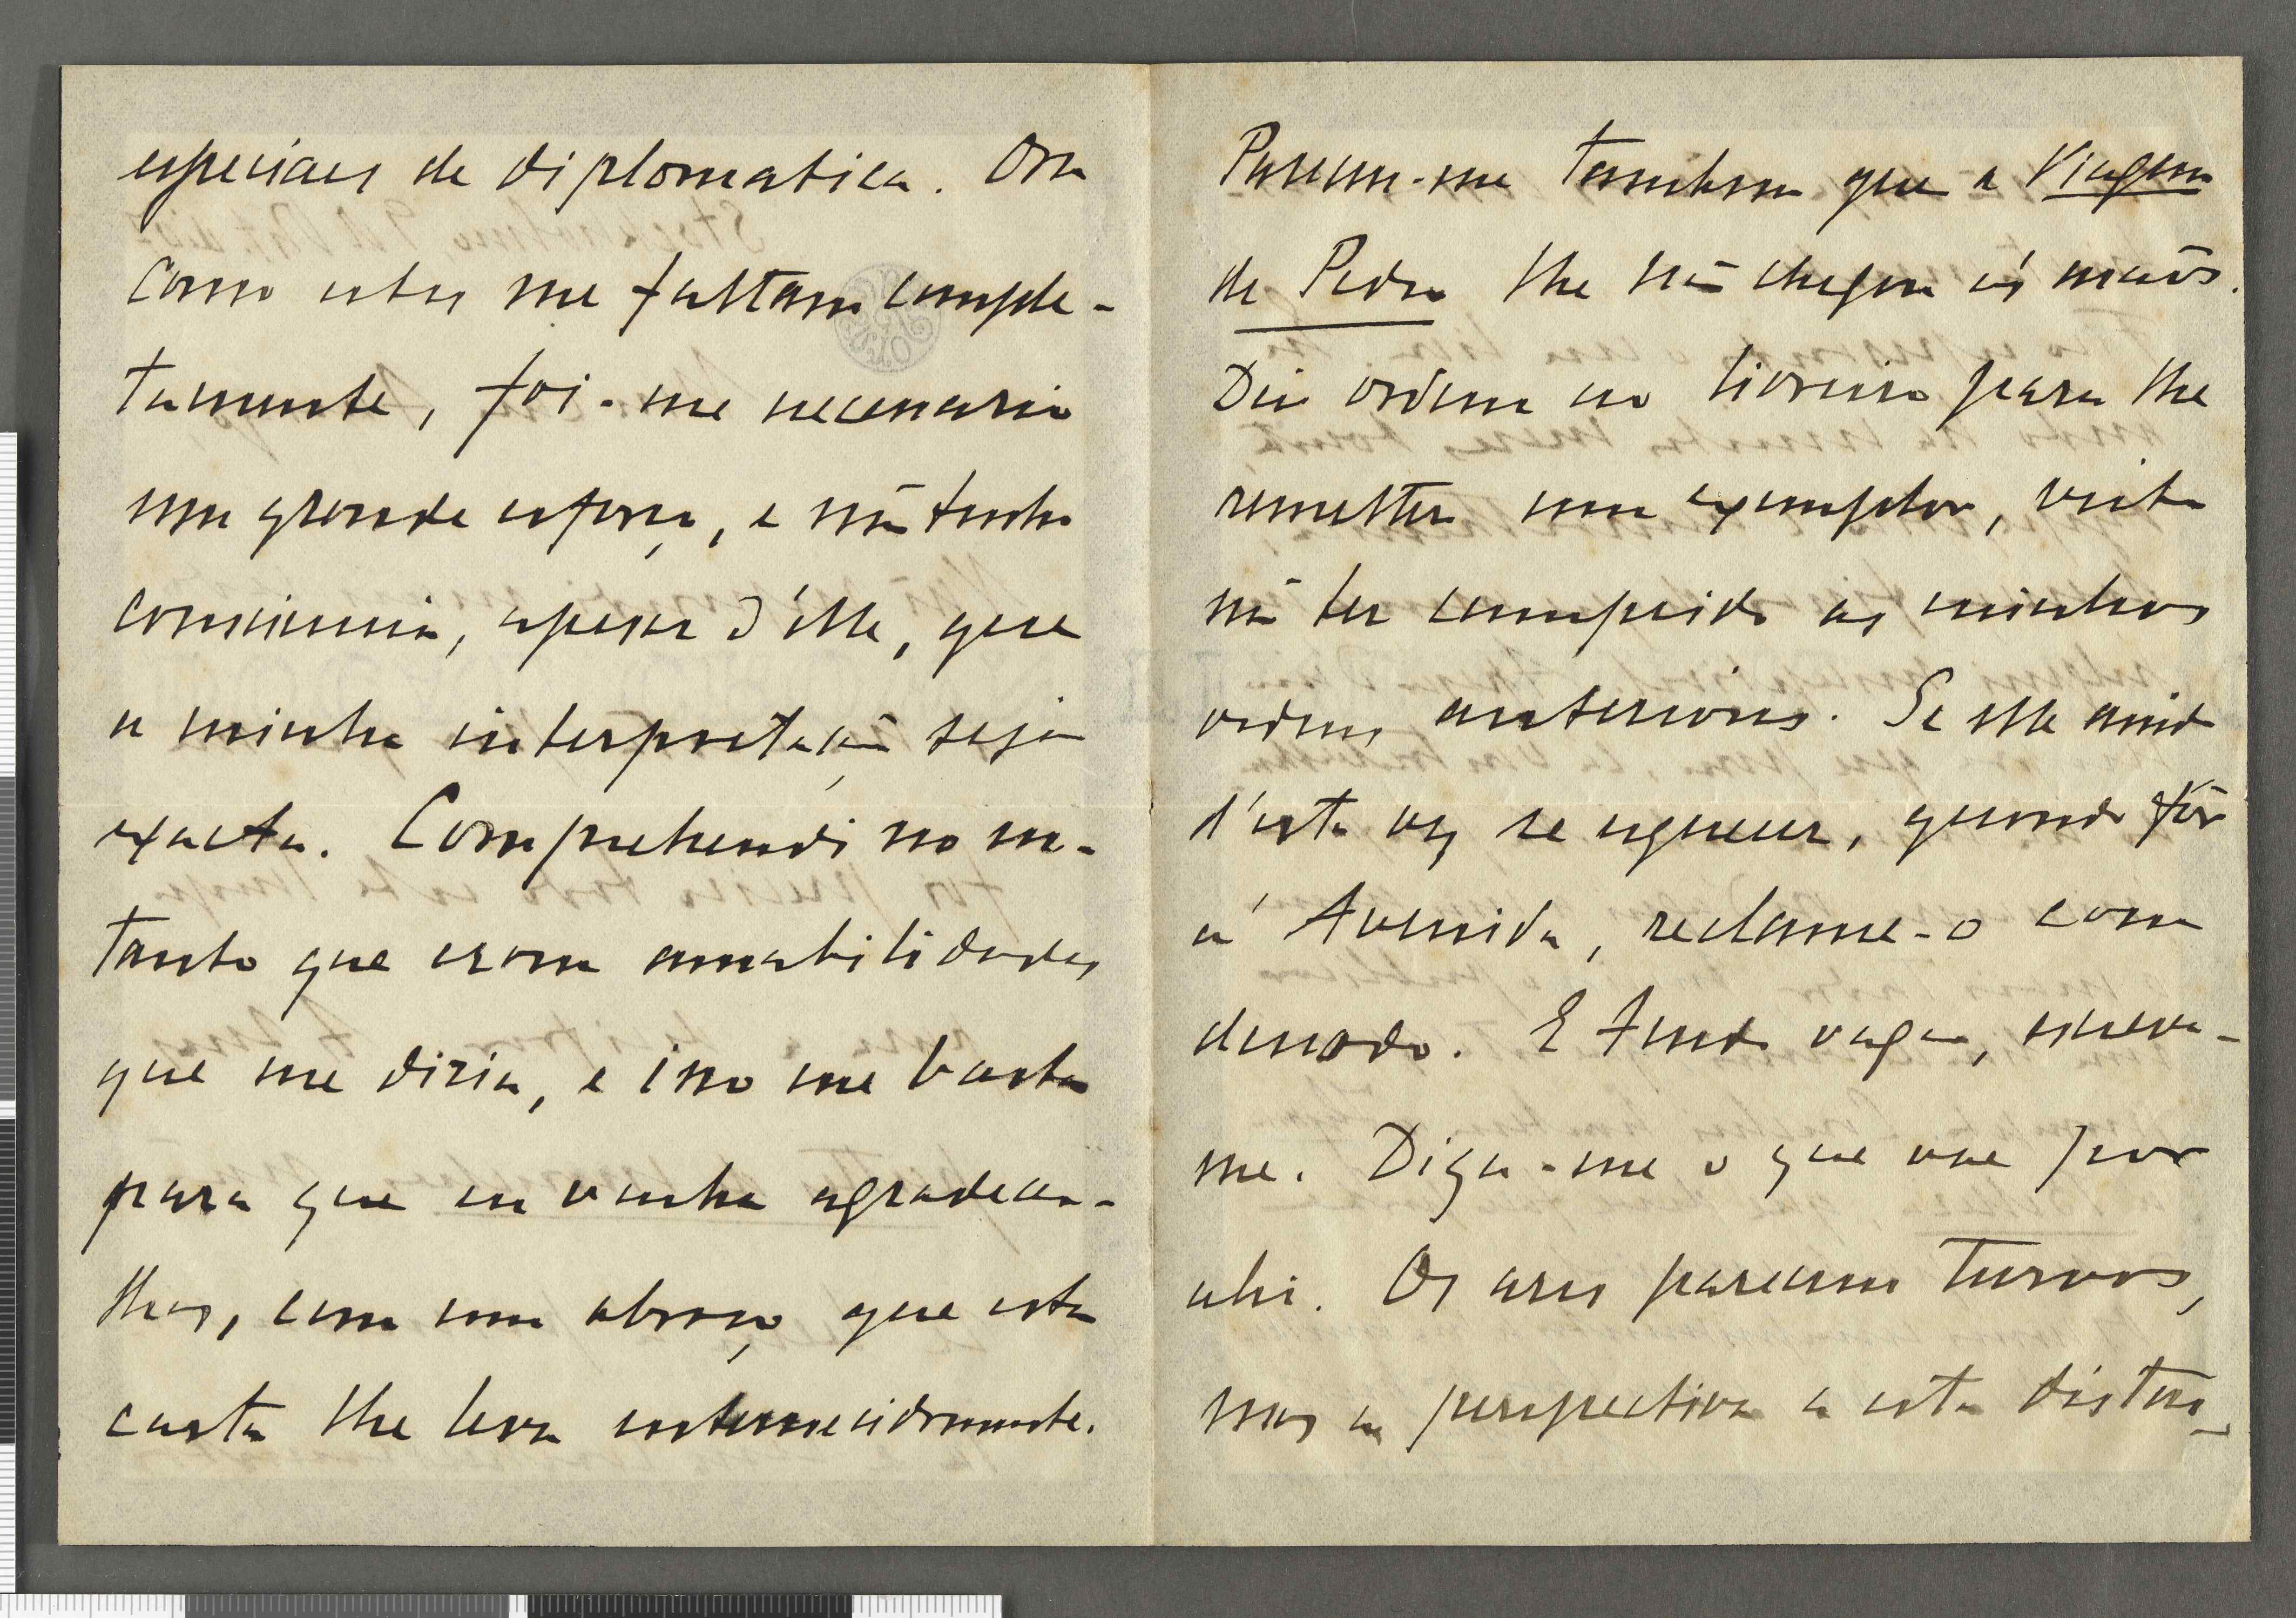 especiaes de diplomatica. Ora
como estes me faltam comple-
tamente, foi-me necessario
um grande esforço, e não tenho
consciencia, apezar d'elle, que
a minha interpretação seja
exacta. Comprehendi no en-
tanto que eram amabilidades
que me dizia, e isso me basta
para que eu venha agradecer-
lhas, com um abraço que esta
carta lhe leva enternecidamente.
Parece-me tambem que a Viagem
de Pedro lhe não chegou ás mãos.
Dei ordem ao livreiro para lhe
remetter um exemplar, visto
não ter cumprido as minhas
ordens anteriores. Se elle ainda
d'esta vez se esquecer, quando fôr
á Avenida, reclame-o com
denodo. E tendo vagar, escreva-
me. Diga-me o que vae por
ahi. Os ares parecem turvos,
mas a perspectiva a esta distan-